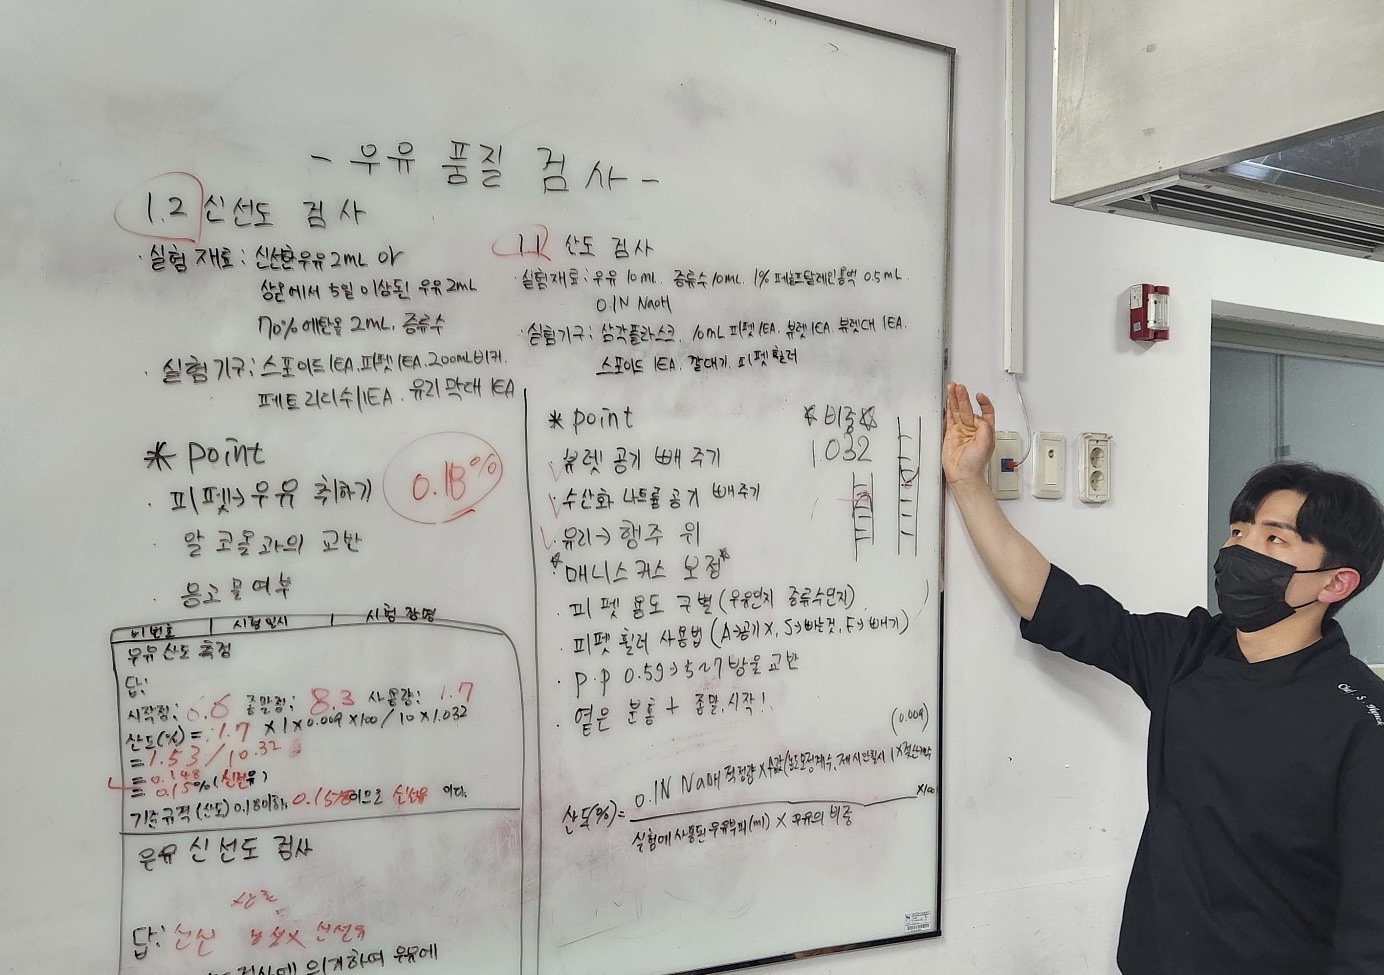 - 우유 품질 검사 -
1.2 신선도 검사
· 실험재료 : 신선한우유 2mL or
상온에서 5일 이상된 우유 2mL
70% 에탄올 2mL. 증류수
· 실험기구 : 스포이드 1EA. 피펫 1EA. 200mL비커.
페트리디쉬 1EA. 유리막대 1EA
* point
· 피펫→우유 취하기
· 알코올과의 교반
· 응고물여부
0.18%
비번호 | 시험일시 | 시험장명
우유 산도 측정
답:
시작점: 6.6 종말점: 8.3 사용량: 1.7
산도(%) = 1.7 × 1 × 0.009 × 100 / 10 × 1.032
= 1.53 / 10.32
= 0.148
= 0.15% (신선유)
기준규격 (산도) 0.18이하. 0.15%이므로 신선유 이다.
우유 신선도 검사
답: 신선 신선유
검사에 의거하여 우유에
1.1 산도 검사
· 실험재료 : 우유 10mL. 증류수 10mL. 1% 페놀프탈레인용액 0.5mL.
0.1N NaOH
· 실험기구 : 삼각플라스크. 10mL 피펫 1EA. 뷰렛 1EA. 뷰렛대 1EA.
스포이드 1EA. 깔대기. 피펫휠러
* point
· 뷰렛 공기 빼주기
· 수산화나트륨 공기 빼주기
· 유리→행주 위
* 매니스커스 보정 *
· 피펫 용도 구별 (우유인지 증류수인지)
· 피펫휠러 사용법 (A→공기X, S→빠는것, E→빼기)
· P.P 0.5g → 5~7방울 교반
· 옅은 분홍 + 종말.시작!
* 비중 *
1.032
(0.009)
산도(%) = 0.1N NaOH 적정량 ×
× 100
실험에 사용된 우유부피(ml) × 우유의 비중